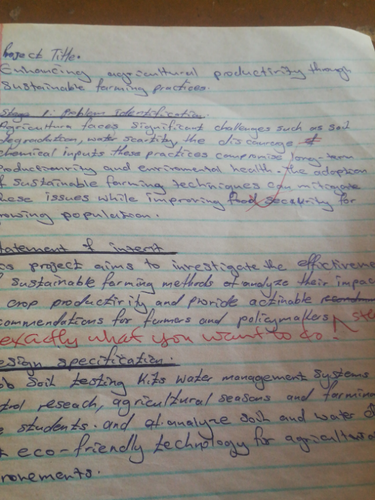 Project Title.
Enhancing agricultural productivity through
Sustainable farming practices.
Stage 1: Problem identification
Agriculture faces significant challenges such as soil
degradation, water scarcity, the discourage of
chemical inputs these practices compromise long-term
productivity and enviromental health. the adoption
of sustainable farming techniques can mitigate
these issues while improving food security for
growing population.
statement of intent
s project aims to investigate the effectivene
f sustainable farming methods of analyze their impac
crop productivity and provide actinable
commendations for farmers and policymakers
exactly what you want to do.
esign specification.
ab Soil testing kits water management systems
trol reseach, agricultural seasons and farmin
e students. and at analyze soil and water
t eco-friendly technology for agricultural
ironements.